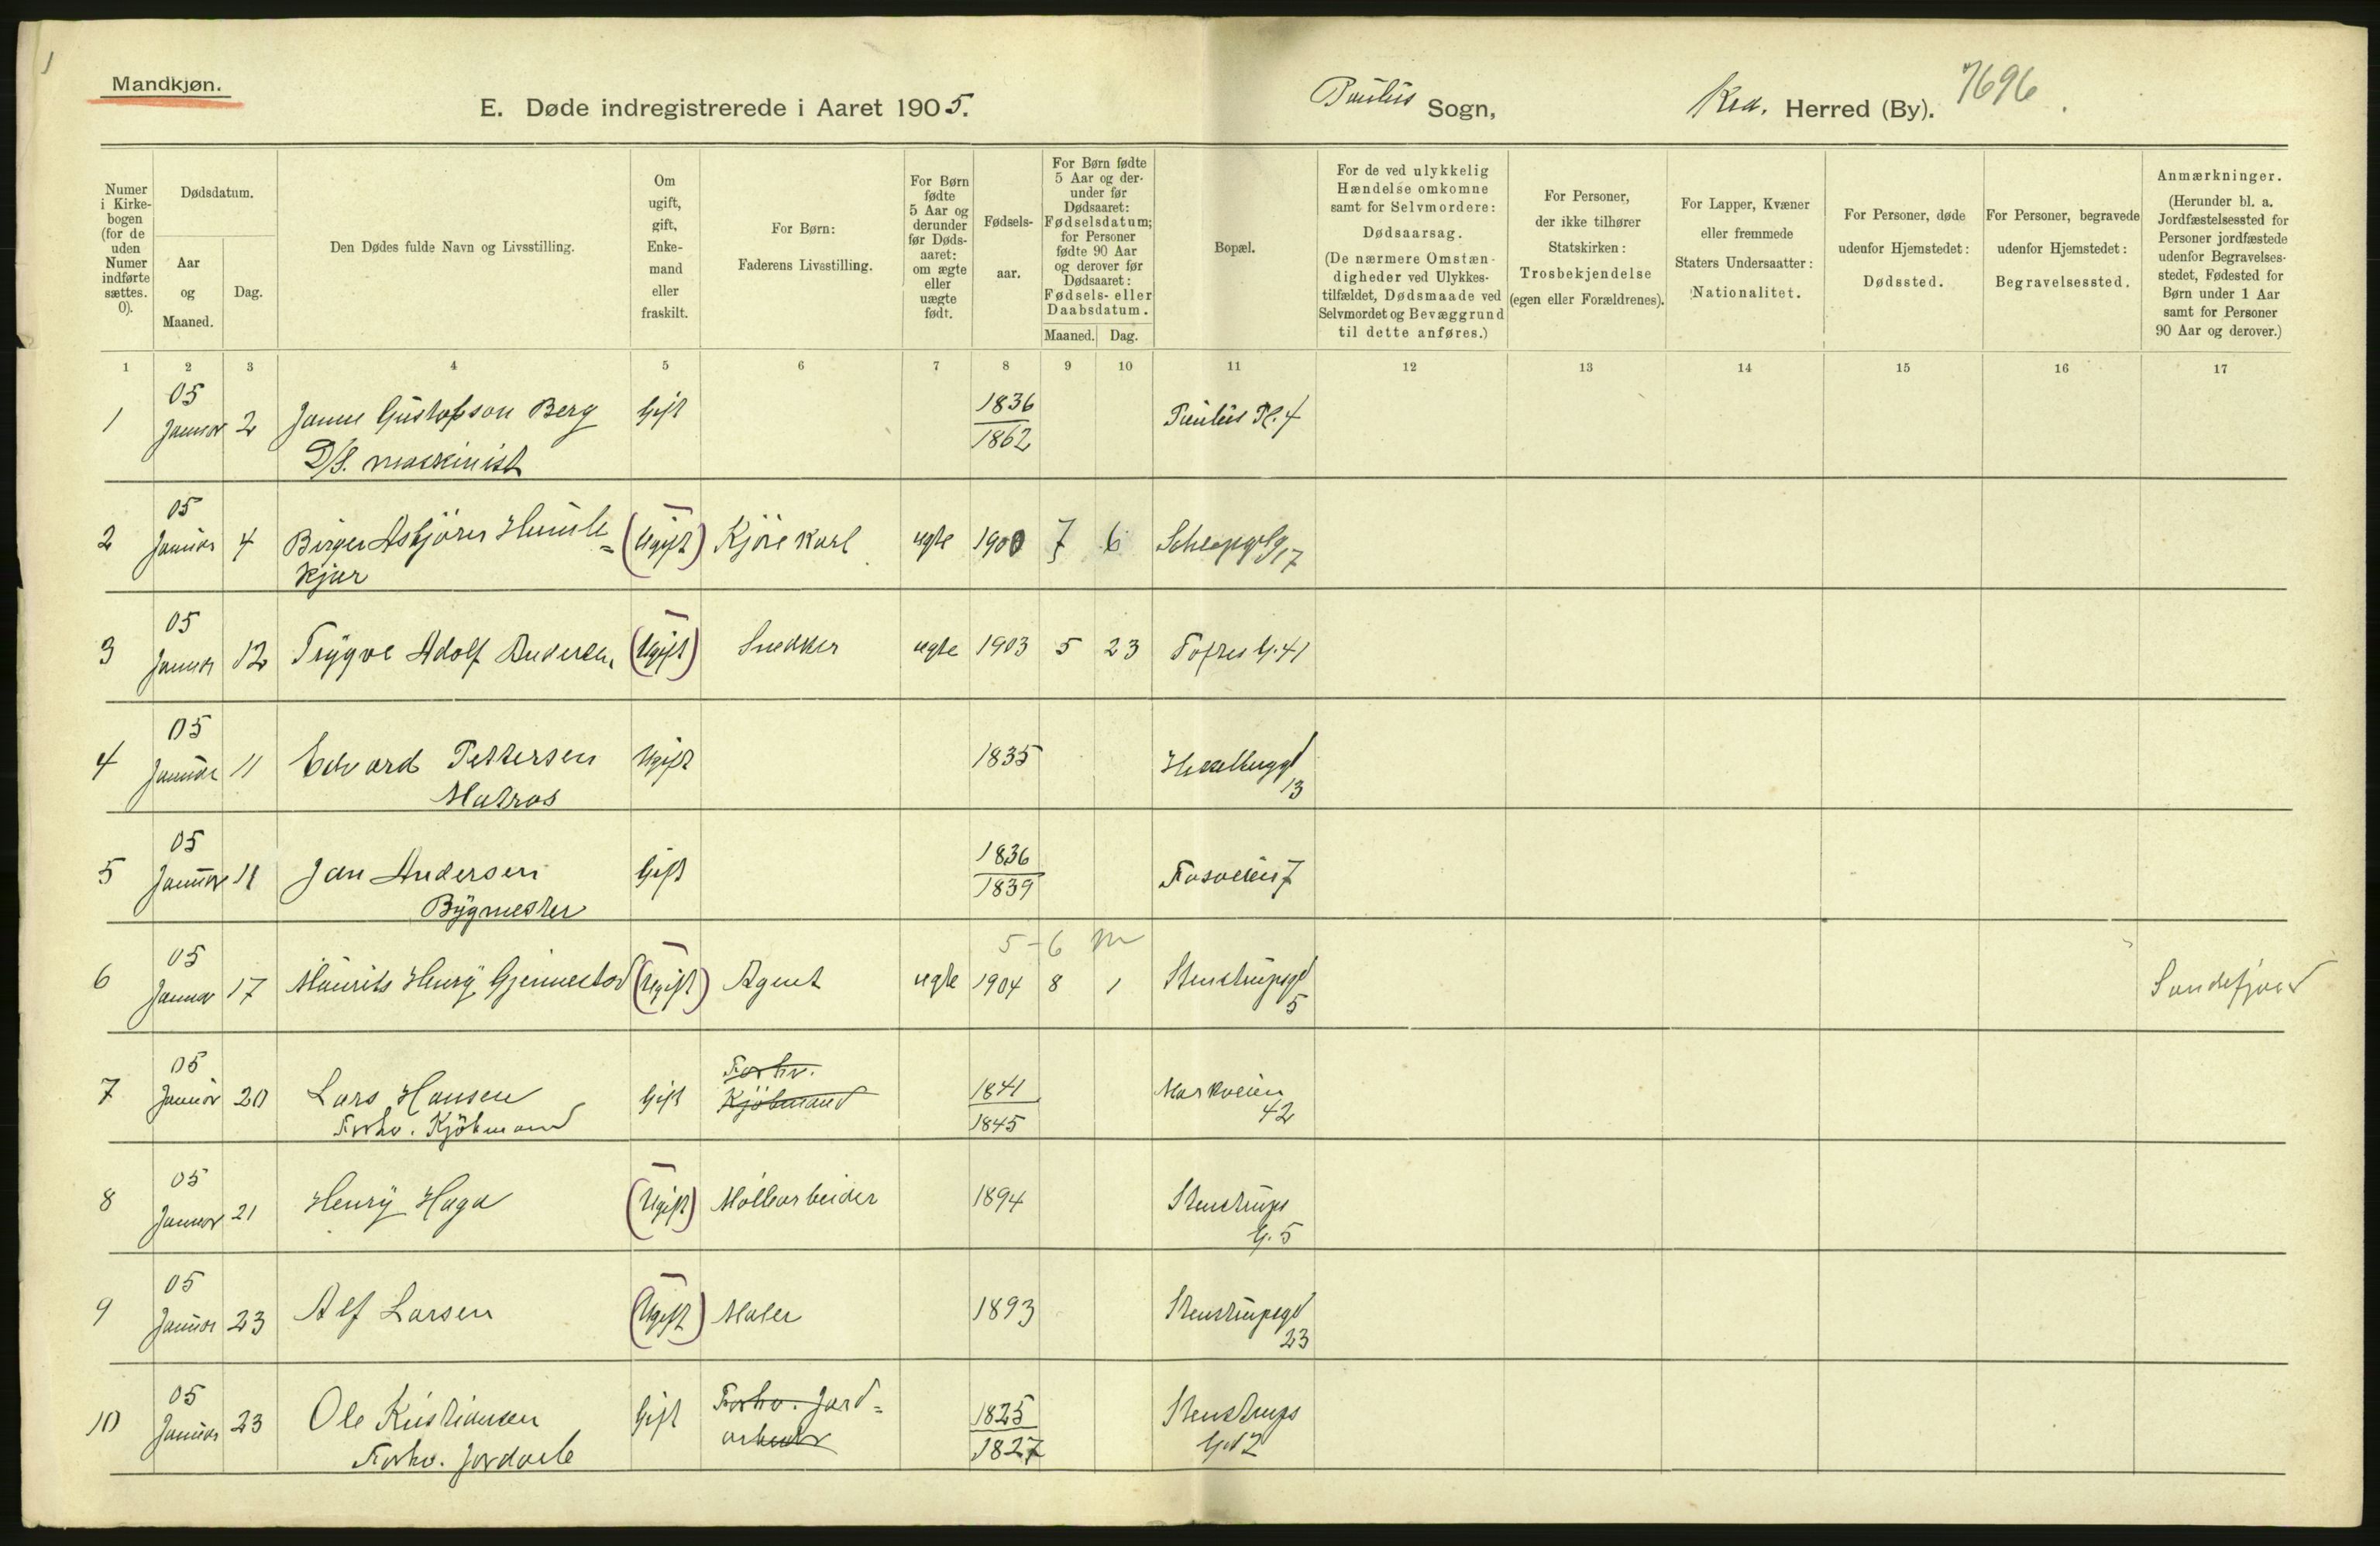 1
Mandkjøn.
E. Døde indregistrerede i Aaret 1905.
Paulus Sogn,
Kra. Herred (By).
7696
Numer i Kirkebogen (for de uden Numer indførte sættes. 0).
Dødsdatum.
Aar og Maaned.
Dag.
Den Dødes fulde Navn og Livsstilling.
Om ugift, gift, Enkemand eller fraskilt.
For Børn: Faderens Livsstilling.
For Børn fødte 5 Aar og derunder før Dødsaaret: om ægte eller uægte født.
Fødselsaar.
For Børn fødte 5 Aar og derunder før Dødsaaret: Fødselsdatum; for Personer fødte 90 Aar og derover før Dødsaaret: Fødsels- eller Daabsdatum.
Maaned. Dag.
Bopæl.
For de ved ulykkelig Hændelse omkomne samt for Selvmordere: Dødsaarsag. (De nærmere Omstændigheder ved Ulykkestilfældet, Dødsmaade ved Selvmordet og Bevæggrund til dette anføres.)
For Personer, der ikke tilhører Statskirken: Trosbekjendelse (egen eller Forældrenes).
For Lapper, Kvæner eller fremmede Staters Undersaatter: Nationalitet.
For Personer, døde udenfor Hjemstedet: Dødssted.
For Personer, begravede udenfor Hjemstedet: Begravelsessted.
Anmærkninger. (Herunder bl. a. Jordfæstelsessted for Personer jordfæstede udenfor Begravelsesstedet, Fødested for Børn under 1 Aar samt for Personer 90 Aar og derover.)
1 2 3 4 5 6 7 8 9 10 11 12 13 14 15 16 17
05
1 Januar 2 Gustafson Berg Gift 1836 Paulus Pl. 4
D/S. maskinist 1862
05
2 Januar 4 Birger Asbjörn Humle= (Ugift) Kjörekarl ægte 1900 7 6 17
kjær
05
3 Januar 12 Trygve Adolf Andersen (Ugift) Snedker ægte 1903 5 23 Toftes G. 41
05
4 Januar 11 Edvard Pettersen Ugift 1835
Matros 13
05
5 Januar 11 Jan Andersen Gift 1836 Fosveien 7
Bygmester 1839
5-6 m
05
6 Januar 17 Maurits Henry Gjennestad (Ugift) Agent ægte 1904 8 1 Stenstrupsgd Sandefjord
5
05 Forhv.
7 Januar 20 Lars Hansen Gift Kjöbmand 1841 Markveien
Forhv. Kjöbmand 1845 42
05
8 Januar 21 Henry Haga (Ugift) Möllearbeider 1894 Stenstrups
G. 5
05
9 Januar 23 Alf Larsen (Ugift) Maler 1893 Stenstrupsgd
23
05 Forhv. Jord=
10 Januar 23 Ole Kristiansen Gift arbeider 1825 Stenstrups
Forhv. Jordarb 1827